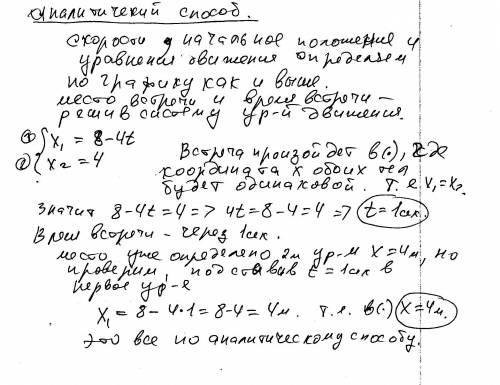 Аналитический способ.
Скорости, начальное положение и
уравнения движения определяем
по графику как и выше.
место встречи и время встречи –
решив систему ур-й движения.
① { x₁ = 8-4t
② { x₂ = 4
Встреча произойдет в (·), где
координата x обоих тел
будет одинаковой. т.е x₁=x₂
Значит 8-4t=4 => 4t=8-4=4 => t=1сек.
Время встречи – через 1сек.
место уже определено 2м ур-м x=4м, но
проверим, подставив t=1сек в
первое ур-е
x₁ = 8-4·1=8-4=4м. т.е. в(·) x=4м.
Это все по аналитическому способу.